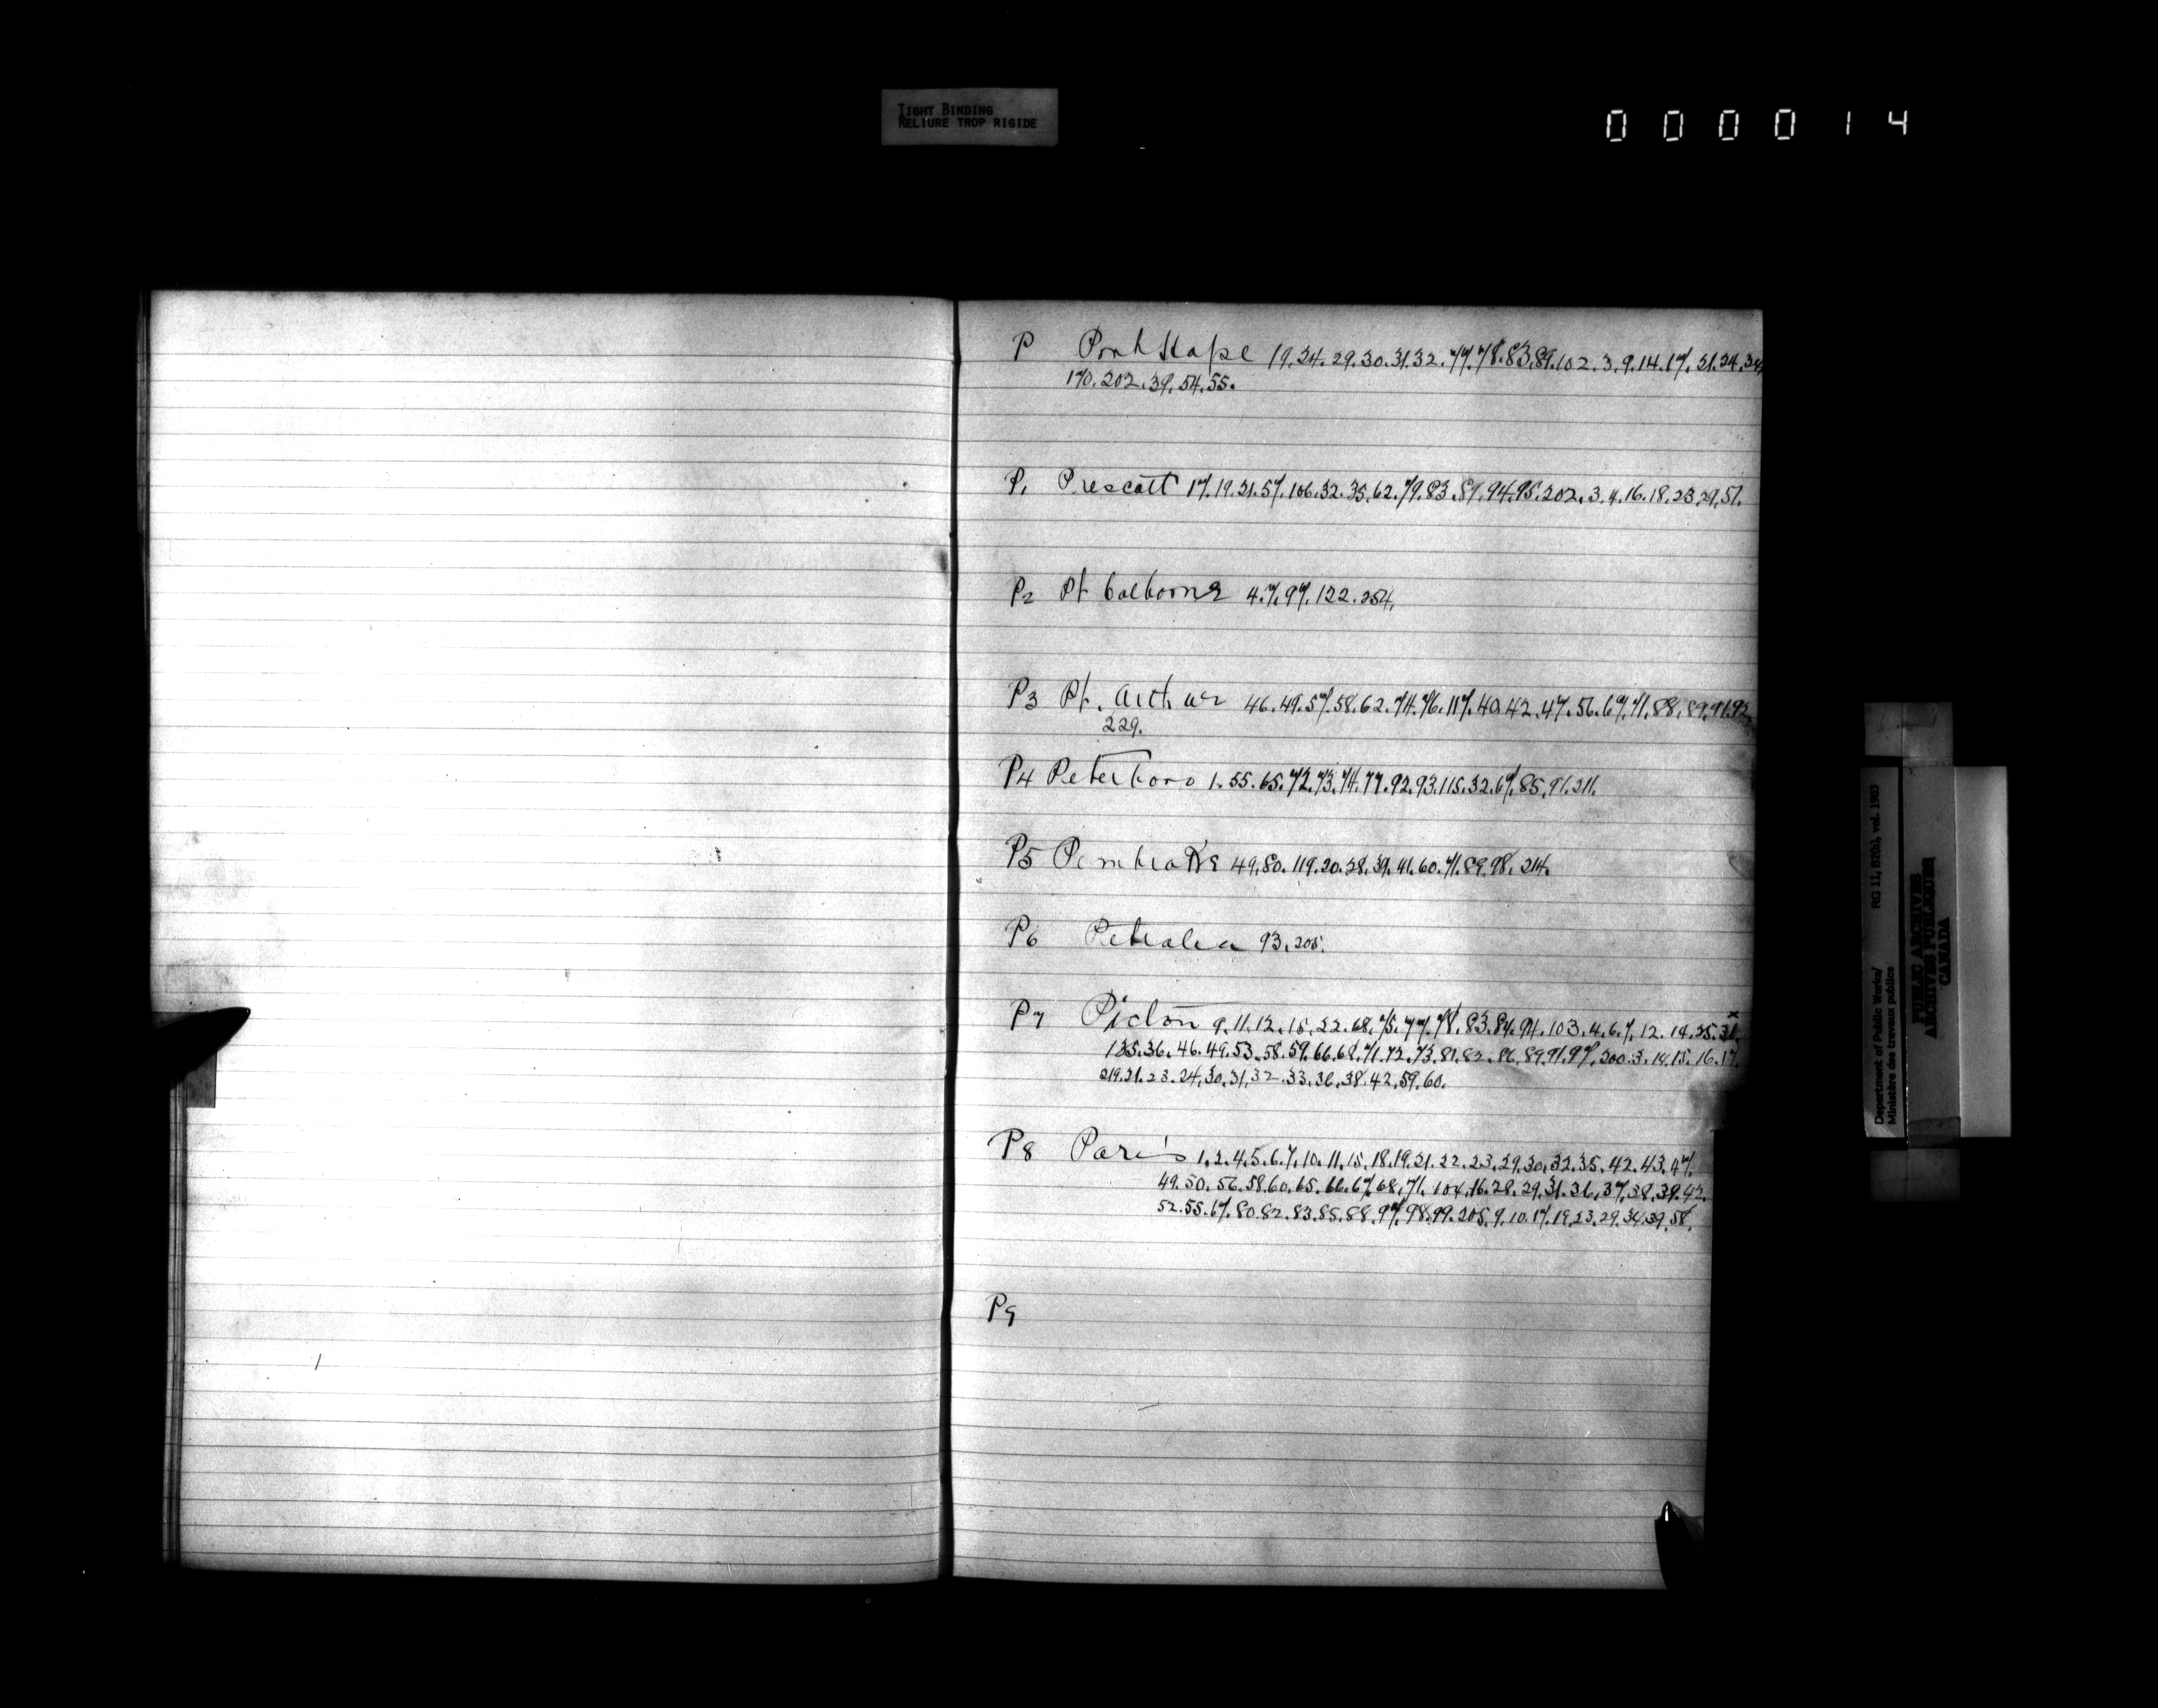 TIGHT BINDING
RELIURE TROP RIGIDE
000014
P Port Hope 19.24.29.30.31.32.77.78.83.89.102.3.9.14.17.21.24.34
170.202.39.54.55.
P1 Prescott 17.19.21.57.106.32.35.62.79.83.89.94.95.202.3.4.16.18.23.29.57.
P2 Pt Colborne 4.7.97.122.254.
P3 Pt. Arthur 46.49.57.58.62.74.76.117.40.42.47.56.67.71.88.89.91.92
229.
P4 Peterboro 1.55.65.72.73.74.77.92.93.115.32.67.85.91.211.
P5 Pembroke 49.80.119.20.38.39.41.60.71.89.98.214.
P6 Petrolea 93.205.
P7 Picton 9.11.12.15.22.68.75.77.78.83.84.94.103.4.6.7.12.14.25.31
135.36.46.49.53.58.59.66.68.71.72.73.81.82.86.89.91.97.200.3.14.15.16.17.
219.21.23.24.30.31.32.33.36.38.42.59.60.
P8 Paris 1.2.4.5.6.7.10.11.15.18.19.21.22.23.29.30.32.35.42.43.47.
49.50.56.58.60.65.66.67.68.71.104.16.28.29.31.36.37.38.39.42.
52.55.67.80.82.83.85.88.97.98.99.205.9.10.17.19.23.29.34.39.58.
P9
Department of Public Works/
Ministère des travaux publics
RG 11, B2(b), vol. 1903
PUBLIC ARCHIVES
ARCHIVES PUBLIQUES
CANADA